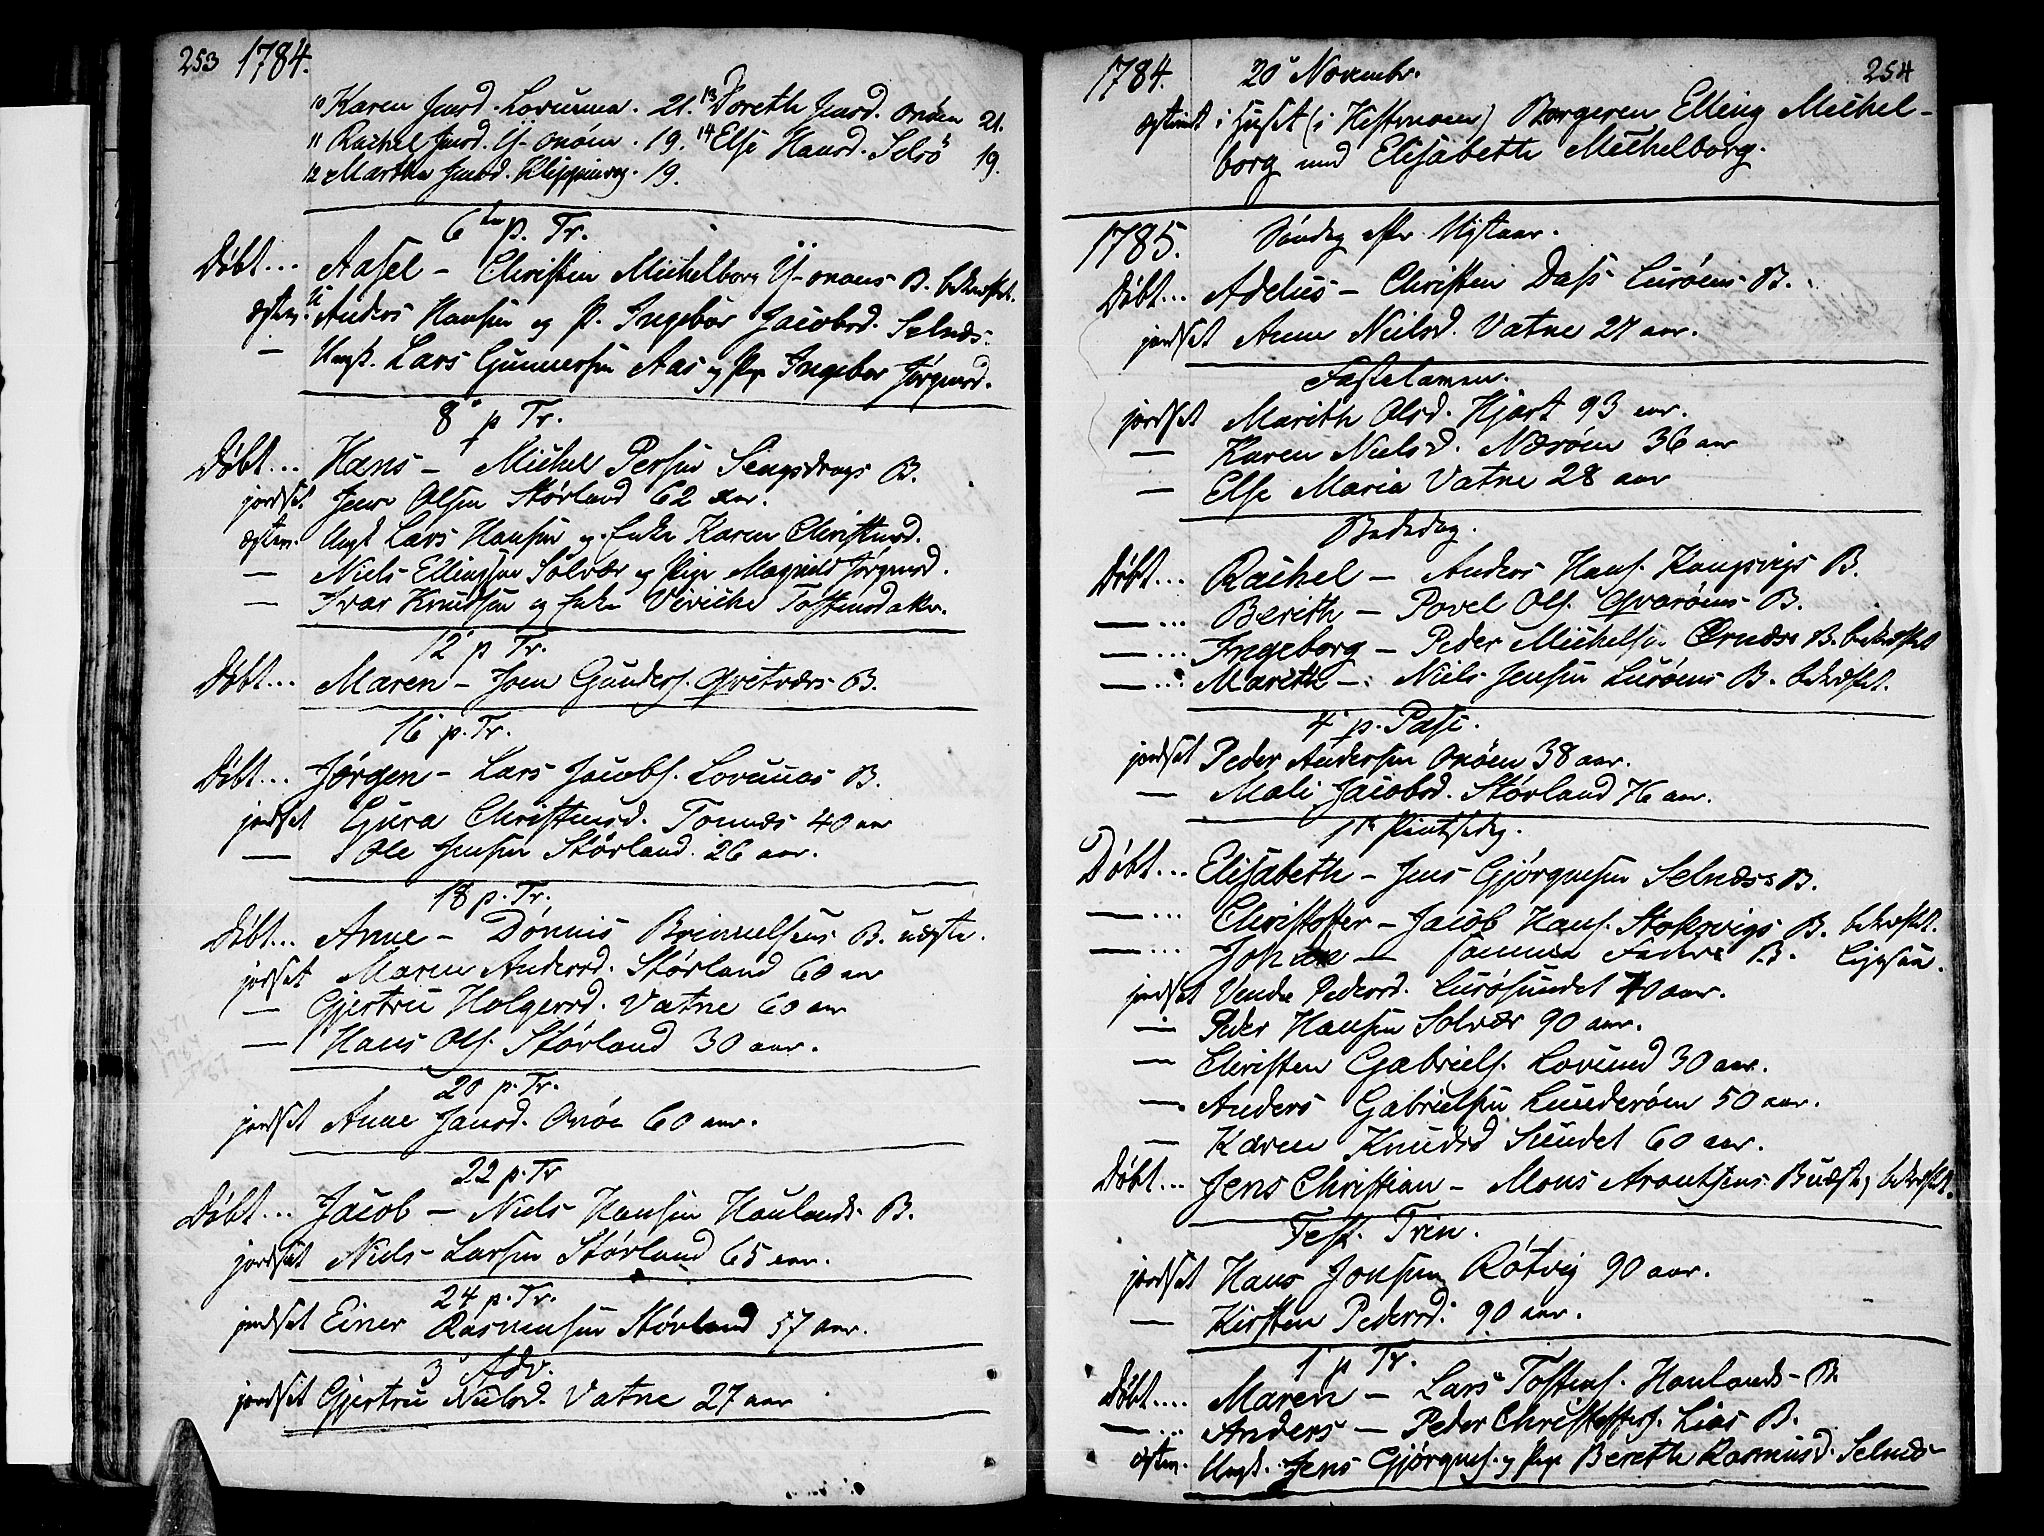 253 1784.
10 Karen Jensd. Lovunna. 21. 13 Doreth Jensd. onöen 21.
11 Rachel Jensd. Y-onöen. 19. 14 Else Hansd. Selsö 19.
12 Martha Jensd. Klippinvog. 19.
6te p. Tr.
Döbt... Aasel - Christen Michelborg Y-onöens B. bekræftet.
Anders Hansen og P. Ingebor Jacobsd. Selnæs.
— Ungk. Lars Gunnersen Aas og Pige Ingebor Jørgensd.
8 p Tr.
Döbt... Hans - Michel Persen B.
jordset Jens Olsen Störland 62 aar.
ægtev. Ungk Lars Hansen og Enke Karen Christensd.
— Niels Ellingsen Solvær og Pige Magnild Jørgensd.
— Ivar Knudsen og Enke Viviche Tostensd
12 p Tr.
Döbt... Maren - Joen Gunders. Qvitværs B.
16 p. Tr.
Döbt... Jörgen - Lars Jacobs. Lovunas B.
jordset Gura Christensd. Tonnæs 40 aar
— Ole Jensen Störland. 26 aar.
18 p. Tr.
Döbt... Anne - Dönnis B. uægte.
jordset Maren Andersd. Störland 60 aar
— Gjertru Holgersd. Vatne 60 aar
— Hans Ols. Störland 30 aar.
20 p. Tr.
jordset Anne Jansd. Onöe 60 aar.
22 p. Tr
Döbt... Jacob - Niels Hansen Haulands B.
jordset Niels Larsen Störland 65 aar.
24 p. Tr.
jordset Einer Rasmussen Störland 57 aar.
3 Adv.
jordset Gjertru Nielsd. Vatne 27 aar
1784. 20 Novembr. 254
i Huset (i Hestmoen) Borgeren Elling Michel-
borg med Elisabeth Michelborg.
1785. Söndag efter Nytaar.
Döbt... Adelus - Christen Dass Luröens B.
jordset Anne Nielsd. Vatne 27 aar.
Fastelamen.
jordset Marith Olsd. Hjart 93 aar.
— Karen Nielsd. Nærøen 36 aar
— Else Maria Vatne 28 aar
Bededag.
Döbt... Rachel - Anders Hans. Kongsvigs B.
— ... Berith - Povel Ols. Qvaröens B.
— ... Ingeborg - Peder Michelsen Ørnæs B. bekræftet
— ... Marith - Niels Jensen Luröens B. bekræftet.
4 p. Pasc.
jordset Peder Andersen Onöen 38 aar.
— Mali Jacobsd. Störland 76 aar.
1te Pintsedag.
Döbt... Elisabeth - Jens Gjörgensen Selnæss B.
— ... Christoffer - Jacob Hans. Stokvigs B. bekræftet.
— ... Johan - samme Faders B.
jordset Venche Pedersd. Lurösundet 70 aar.
— Peder Hansen Solvær 90 aar.
— Christen Gabriels. Lovund 30 aar.
— Anders Gabrielsen Lunderöen 50 aar.
— Karen Knudsd Sundet 60 aar.
Döbt... Jens Christian - Mons Arontsens B uægte, bekræftet.
Fest. Trin.
jordset Hans Jonsen Rötvig 90 aar.
— Kirsten Pedersd. 90 aar.
1 p Tr.
Döbt.... Maren - Lars Tostens. Haulands - B.
— ... Anders - Peder Christoffers. Lias B.
ægtev. Ungk. Jens Gjörgens. og Pige Bereth Rasmusd. Selnæs